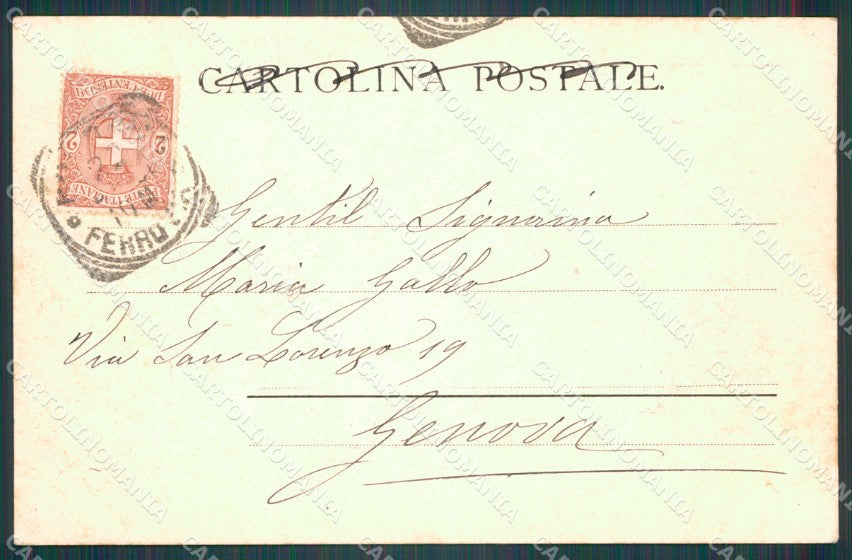 CARTOLINA POSTALE.
DUE CENTESIMI
2 2
POSTE ITALIANE
FERROVIA
Gentil Signorina
Maria Gallo
Via San Lorenzo 19
Genova
CARTOLINOMANIA